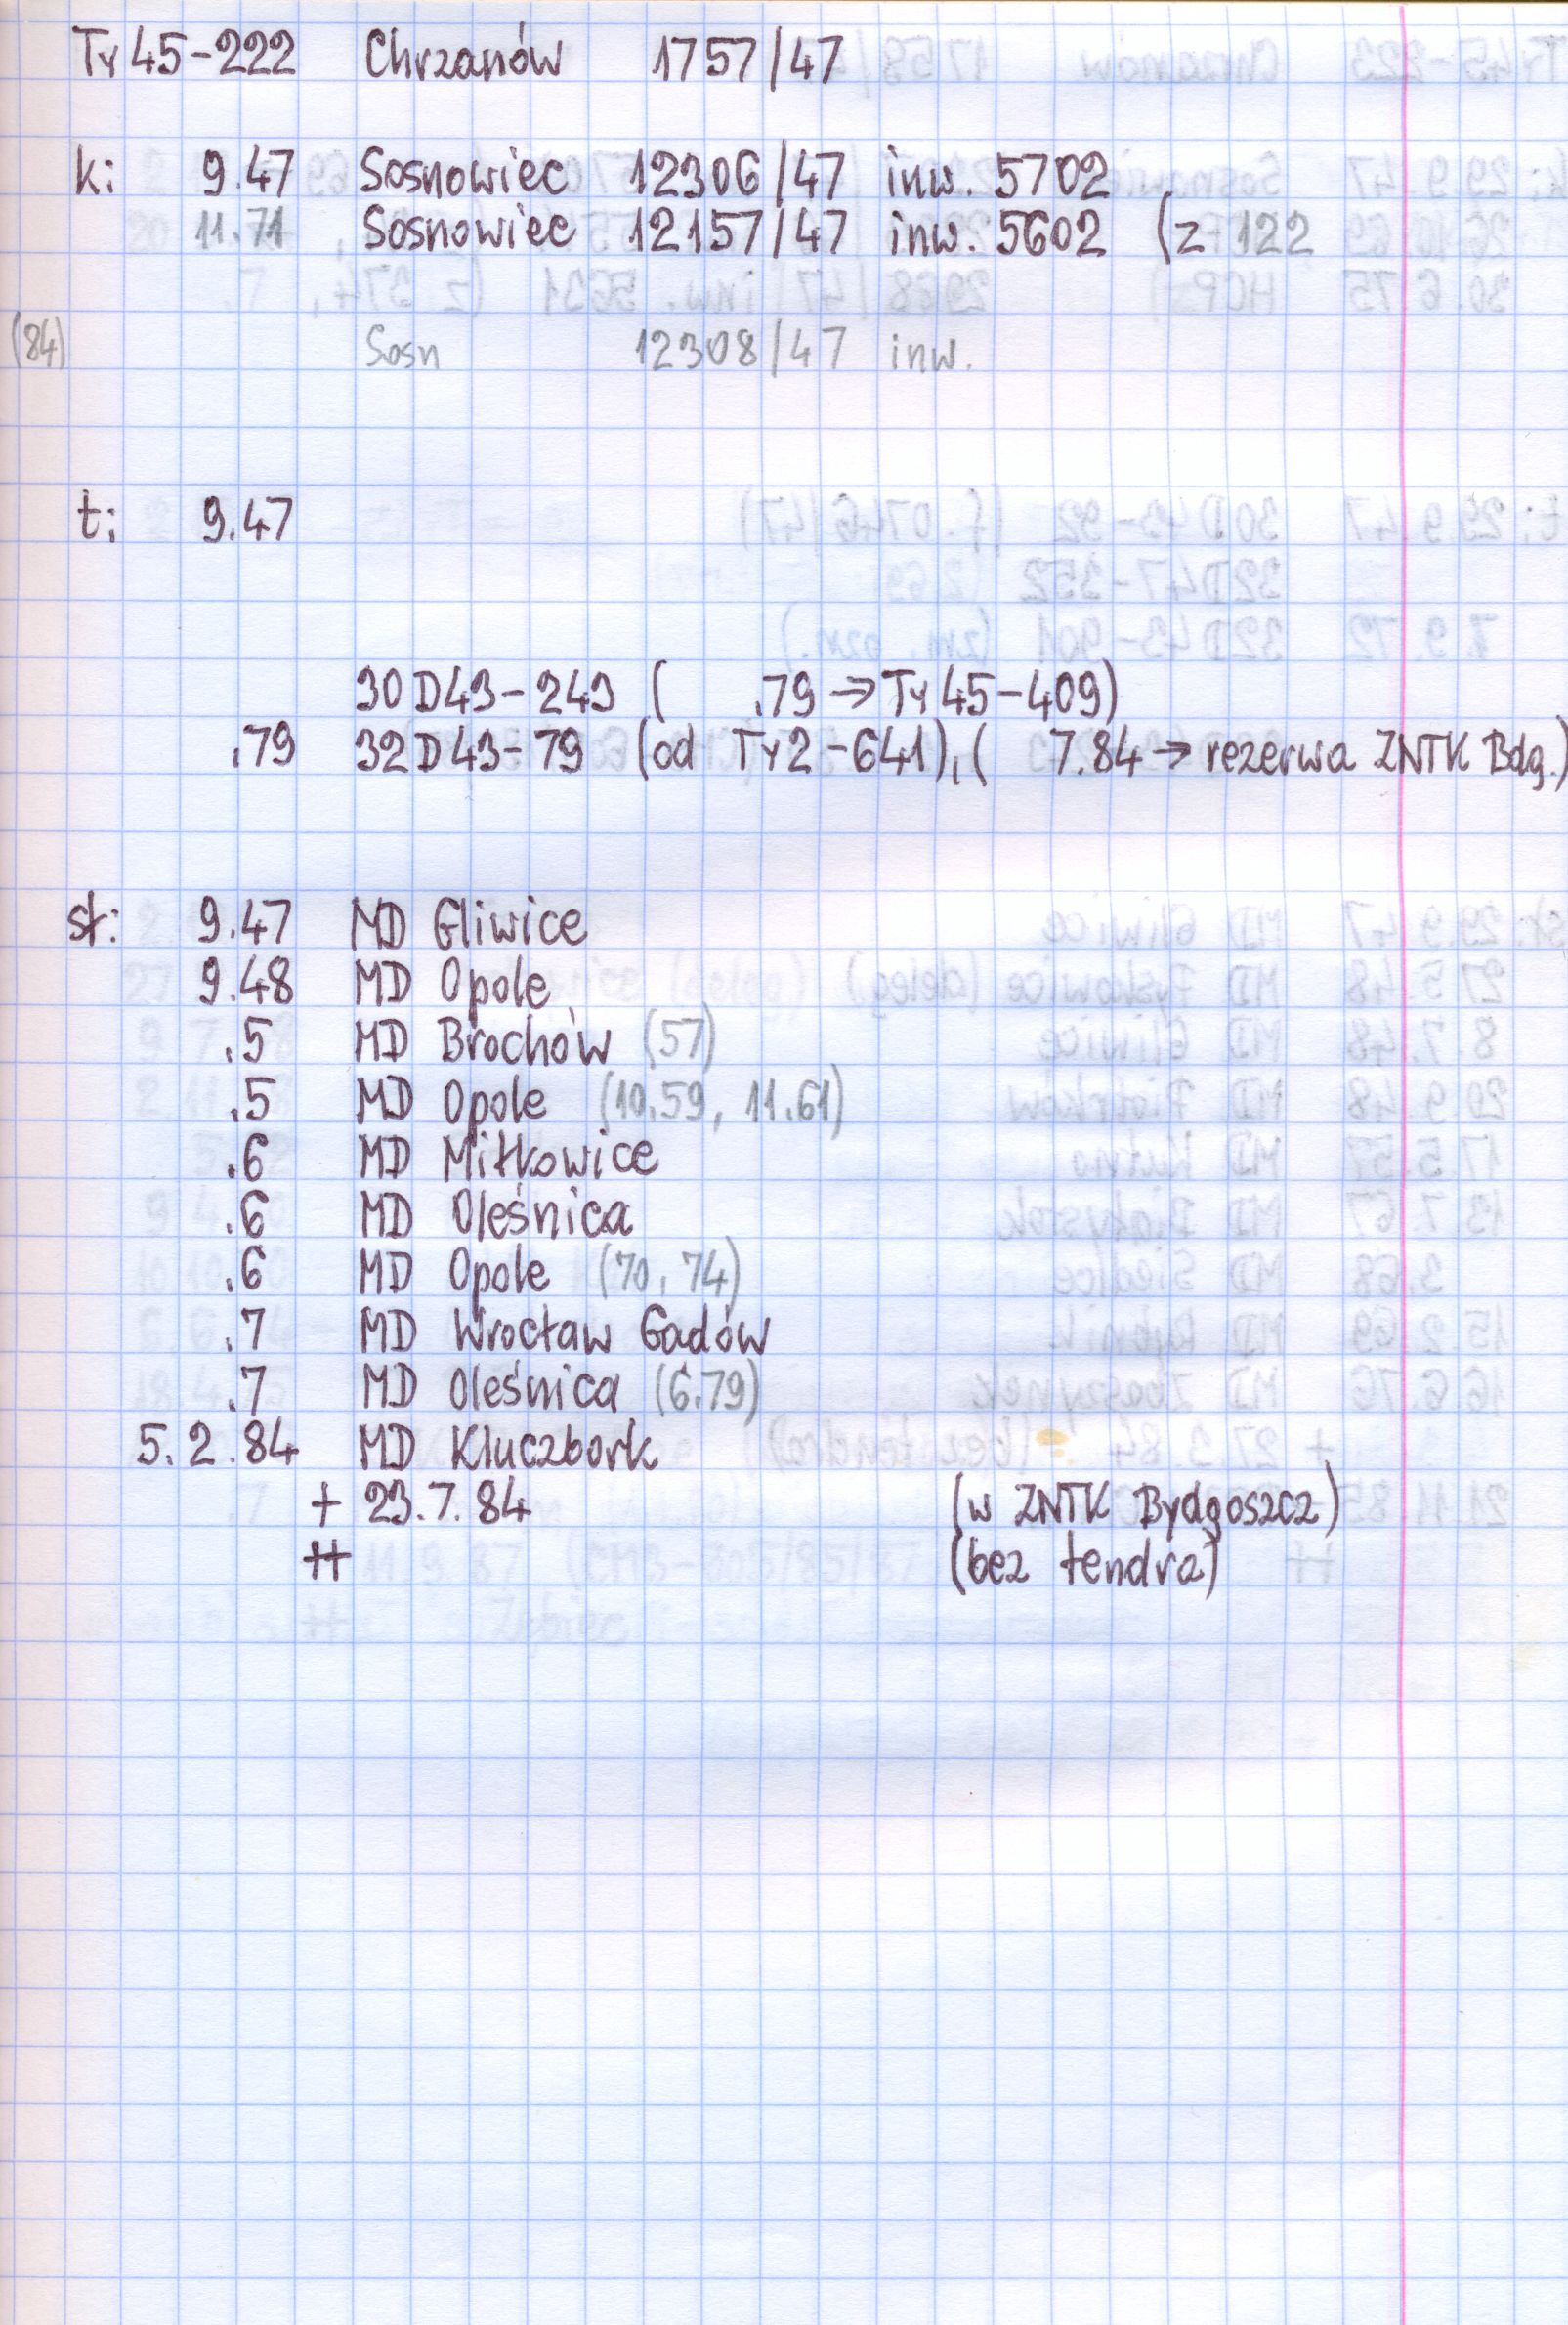 Ty45-222 Chrzanów 1757/47
k: 9.47 Sosnowiec 12306/47 inw. 5702
11.71 Sosnowiec 12157/47 inw. 5602 (z 122
(84) Sosn 12308/47 inw.
t: 9.47
30D43-243 ( .79 → Ty45-409)
.79 32D43-79 (od Ty2-641), ( 7.84 → rezerwa ZNTK Bdg.)
st: 9.47 MD Gliwice
9.48 MD Opole
.5 MD Brochów (57)
.5 MD Opole (10.59, 11.61)
.6 MD Miłkowice
.6 MD Oleśnica
.6 MD Opole (70, 74)
.7 MD Wrocław Gadów
.7 MD Oleśnica (6.79)
5.2.84 MD Kluczbork
+ 23.7.84 (w ZNTK Bydgoszcz)
++ (bez tendra)